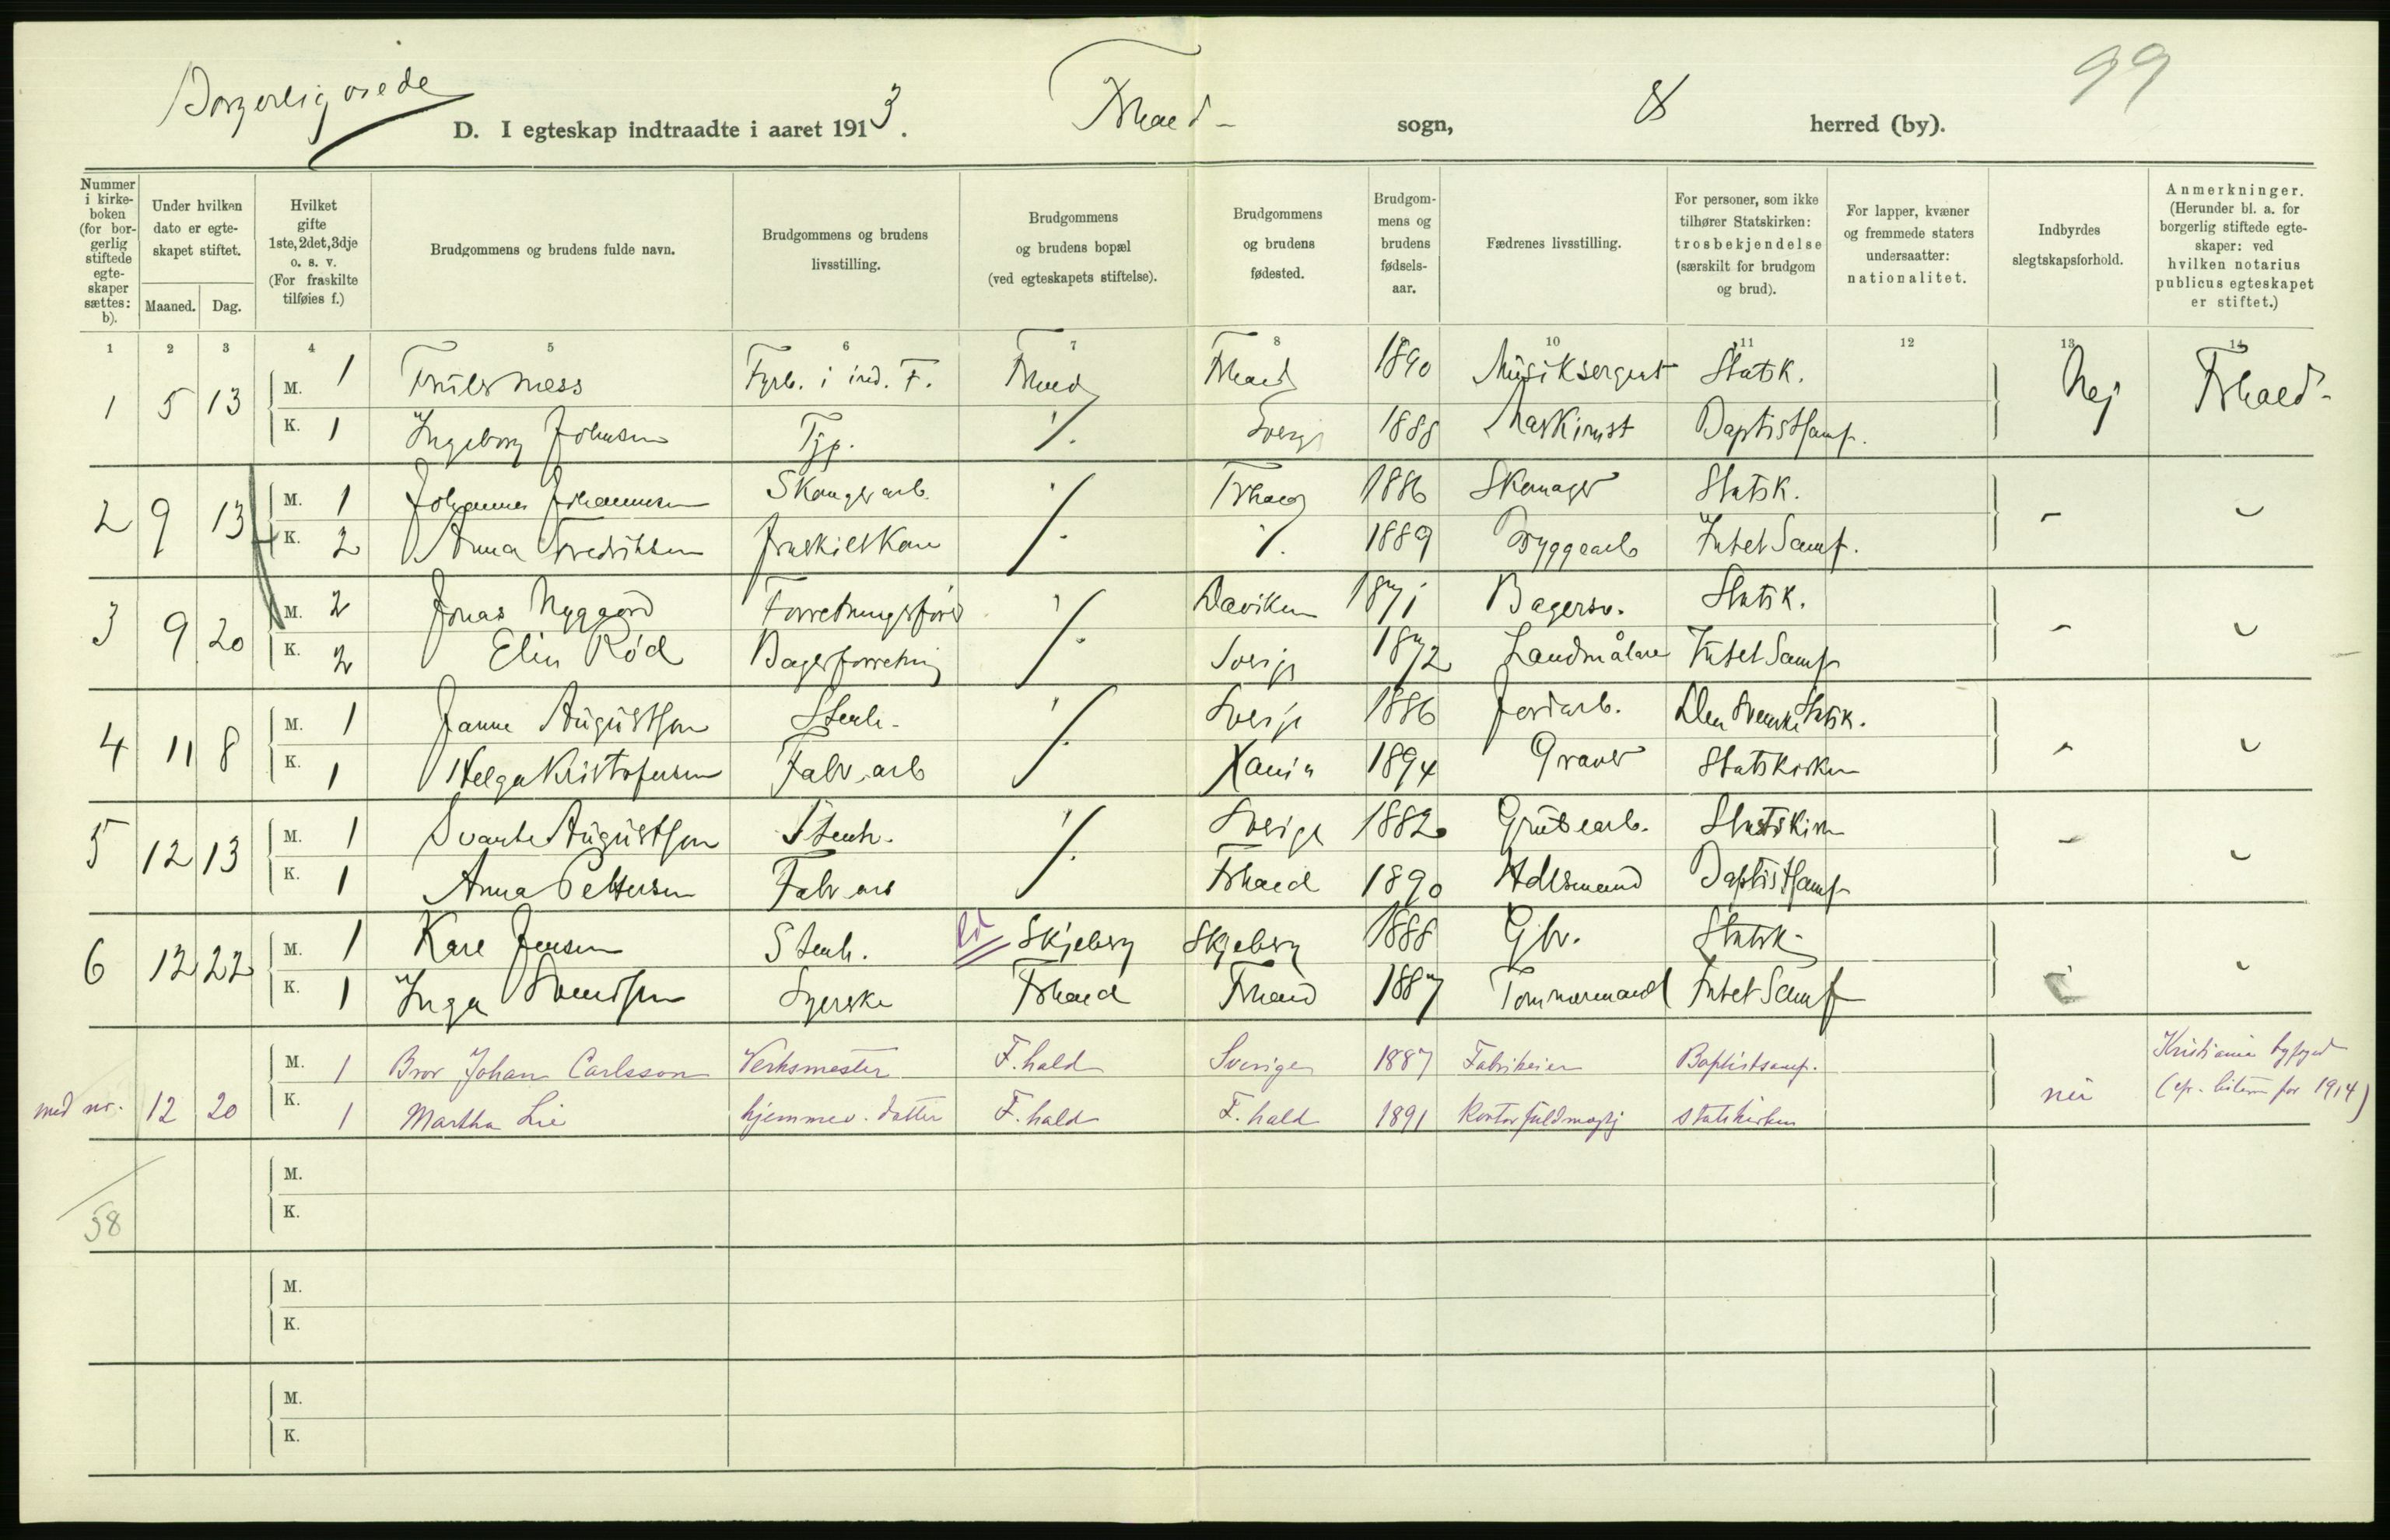 Borgerlig viede
99
D. I egteskap indtraadte i aaret 1913. Frhald sogn, 8 herred (by).
Nummer i kirkeboken (for borgerlig stiftede egteskaper sættes: b).
Under hvilken dato er egteskapet stiftet.
Maaned. Dag.
Hvilket gifte 1ste, 2det, 3dje o. s. v. (For fraskilte tilføies f.)
Brudgommens og brudens fulde navn.
Brudgommens og brudens livsstilling.
Brudgommens og brudens bopæl (ved egteskapets stiftelse).
Brudgommens og brudens fødested.
Brudgommens og brudens fødselsaar.
Fædrenes livsstilling.
For personer, som ikke tilhører Statskirken: trosbekjendelse (særskilt for brudgom og brud).
For lapper, kvæner og fremmede staters undersaatter: nationalitet.
Indbyrdes slegtskapsforhold.
Anmerkninger. (Herunder bl. a. for borgerlig stiftede egteskaper: ved hvilken notarius publicus egteskapet er stiftet.)
1 2 3 4 5 6 7 8 10 11 12 13 14
1 5 13 M. 1 Ness Fyrb. i ind. F. Frhald Frhald 1890 Musiksergent Statsk. Nej Frhald
K. 1 Ingeborg Johnsen ./. Sverge 1888 Maskinist Baptistsamf.
2 9 13 M. 1 Johannes Johannesen ./. Frhald 1886 Skomager Statsk. - "
K. 2 Anna Fredriksen fraskilt Kone ./. 1889 Byggearb Intet Samf.
3 9 20 M. 2 Jonas Nyggord Forretningsfører ./. Daviken 1871 Bagersv. Statsk. - "
K. 2 Elin Rød Bagerforretning Sverige 1872 Landmålare Intet Samf
4 11 8 M. 1 Janne Augustson Stenh. ./. Sverige 1886 Jordarb. Den Svenske Statsk. - "
K. 1 Helga Kristofersen Fabr. arb Xania 1894 Graver Statskirken
5 12 13 M. 1 Svante Augustson Stenh. ./. Sverige 1882 Grubearb. Statskirk - "
K. 1 Anna Pettersen Fabr. arb Frhald 1890 Baptistsamf
6 12 22 M. 1 Kare Jensen Stenh. Skjeberg Skjeberg 1888 Gbr. Statsk. "
K. 1 Inga Svendsen Syerske Frhald Frhald 1887 Tommermand Intet Samf
M. 1 Bror Johan Carlsson Verksmester F.hald Sverige 1887 Fabrikeier Baptistsamf. Kristiania byfoged
12 20 K. 1 Martha Lie hjemmev. datter F.hald F.hald 1891 Kontorfuldmægtig statskirken nei for 1914)
M.
K.
58
M.
K.
M.
K.